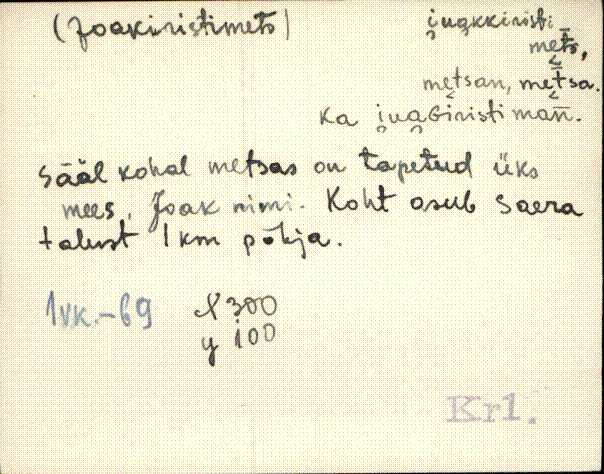 (Joakiristimets)
i̯ua̯kkiristi
mets̄,
metsan, met̄sa.
ka i̯ua̯Giristi man̄.
Sääl kohal metsas on tapetud üks
mees, Joak nimi. Koht asub Saera
talust 1 km põhja.
1vk.-69 X 300
y 100
Krl.